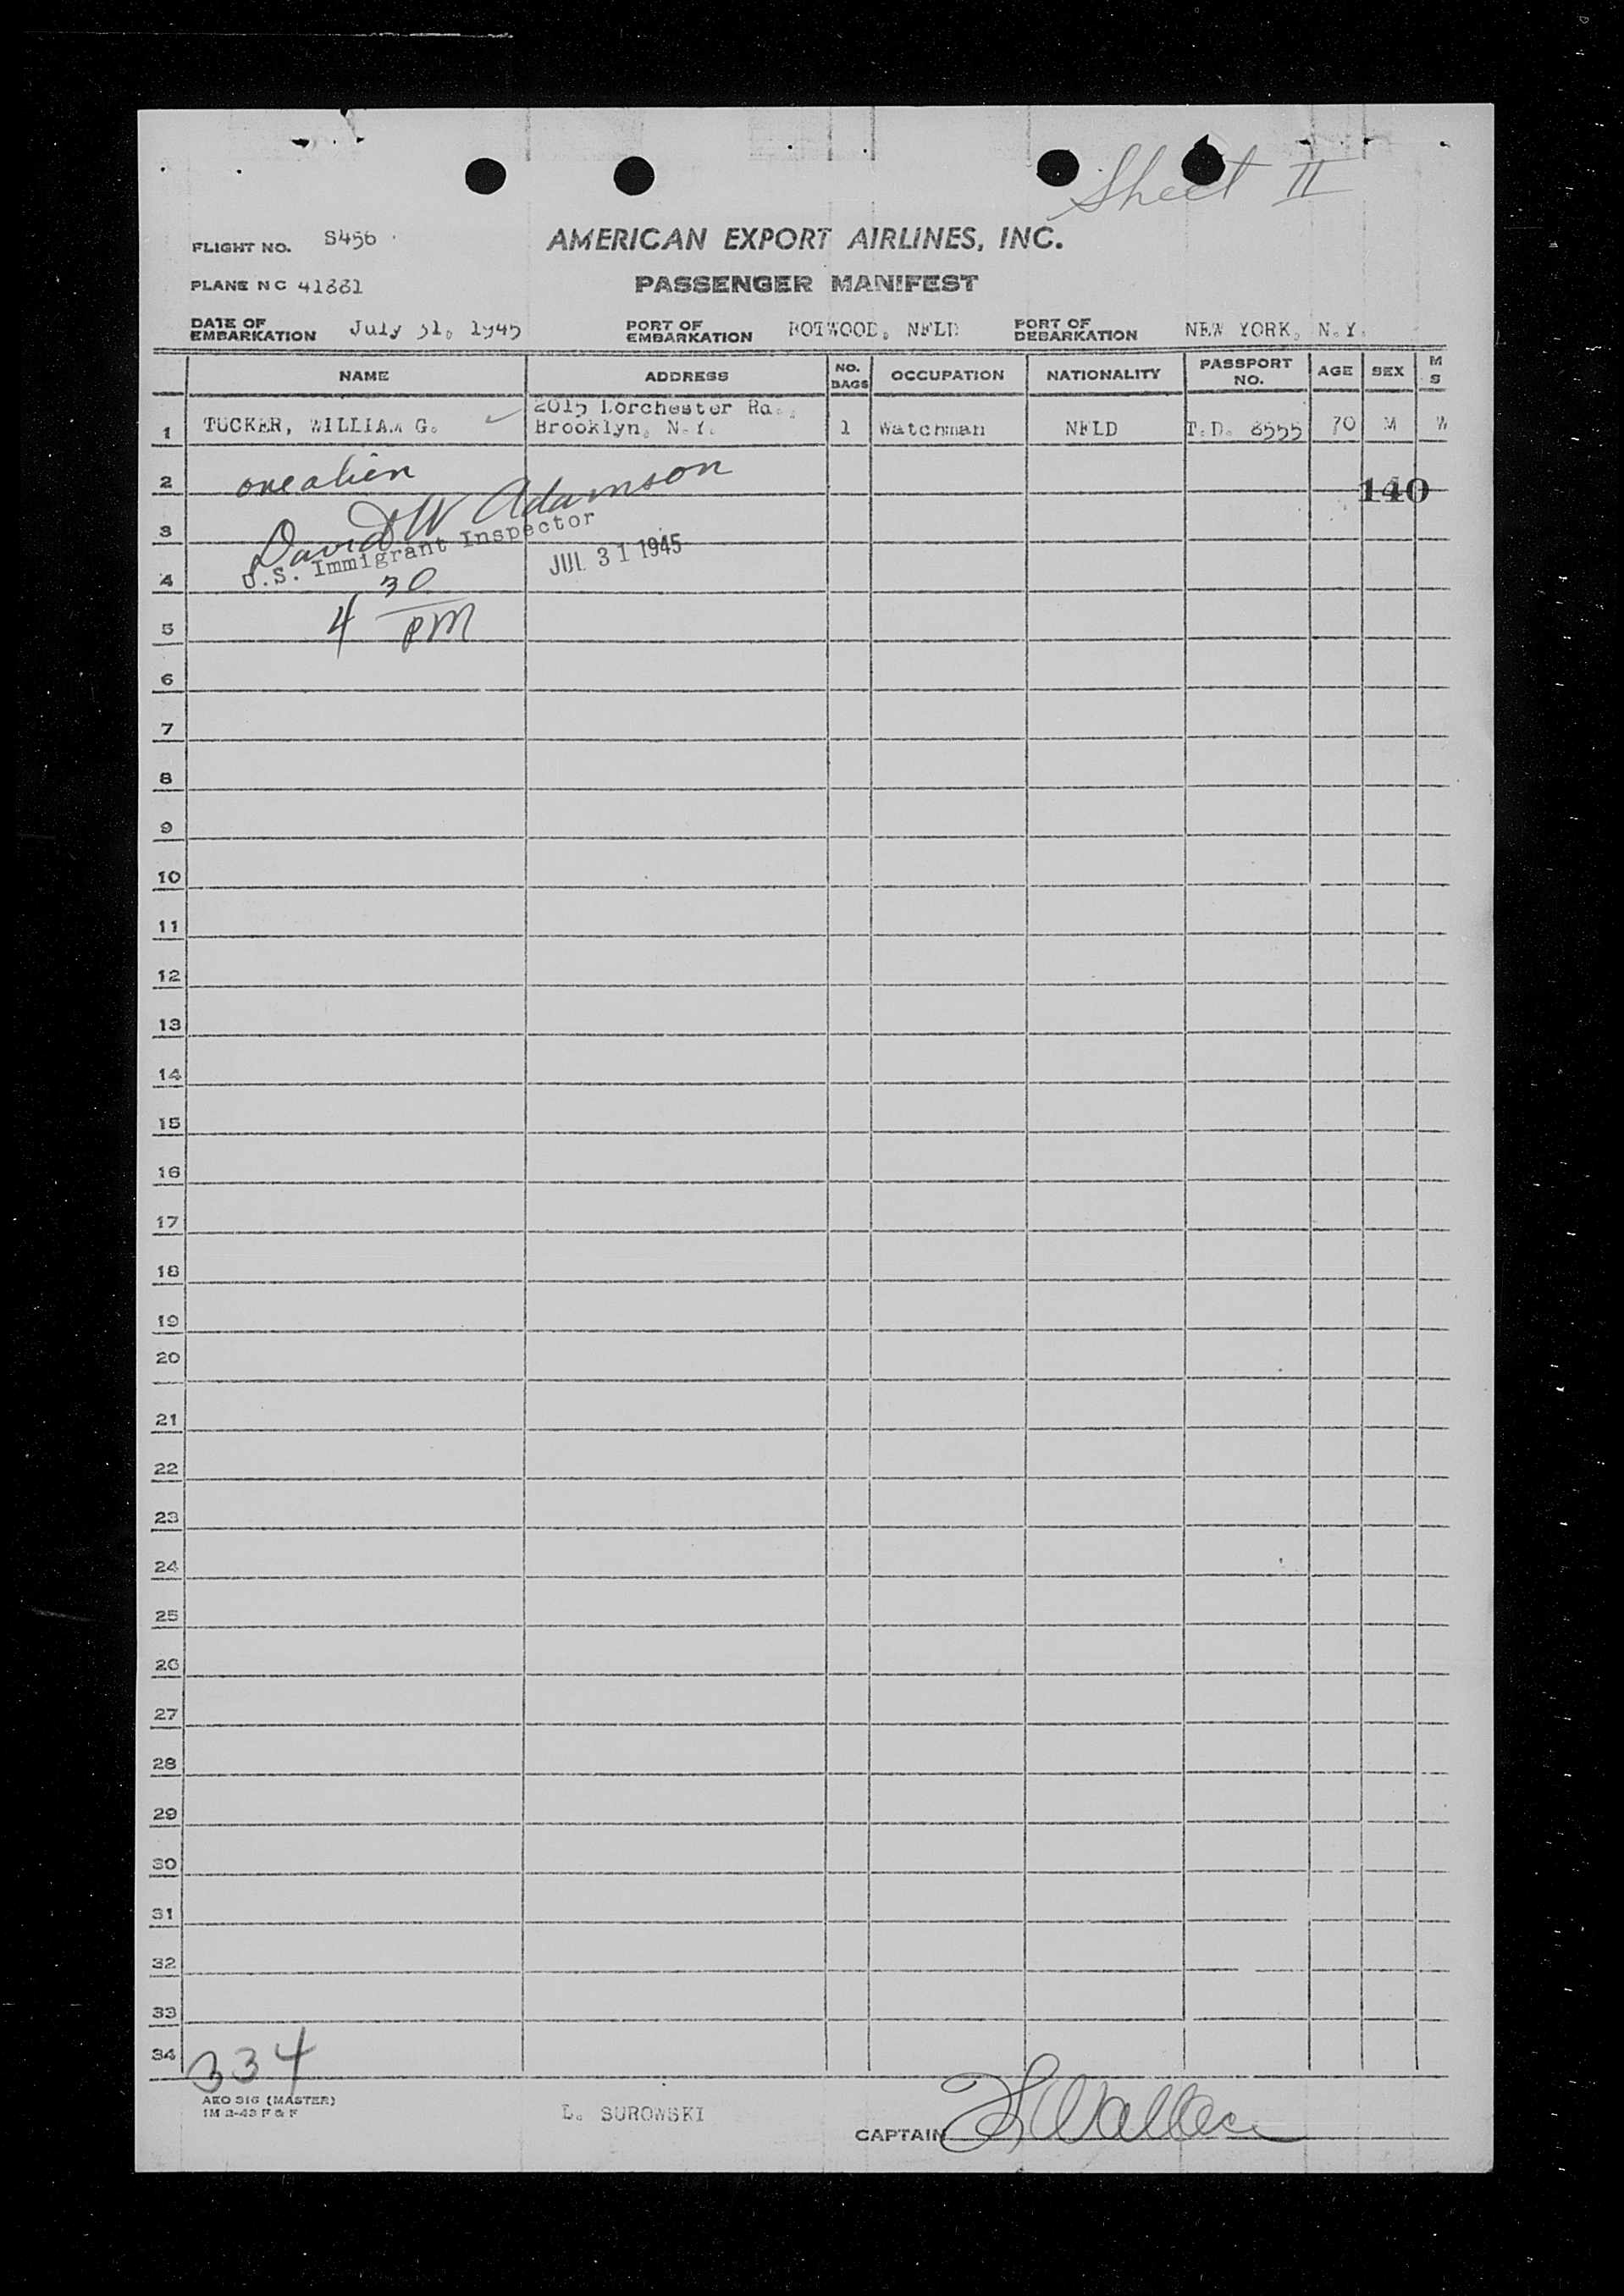 Sheet II
FLIGHT NO. S456
AMERICAN EXPORT AIRLINES, INC.
PLANE NC 41881
PASSENGER MANIFEST
DATE OF EMBARKATION July 31, 1945 PORT OF EMBARKATION BOTWOOD, NFLD PORT OF DEBARKATION NEW YORK, N.Y.
NAME ADDRESS NO. BAGS OCCUPATION NATIONALITY PASSPORT NO. AGE SEX M S
2015 Dorchester Rd.,
1 TUCKER, WILLIAM G. Brooklyn, N.Y. 1 Watchman NFLD T.D. 8555 70 M W
2 one alien 140
3 David W Adamson
U.S. Immigrant Inspector JUL 31 1945
4 30
5 4 PM
6
7
8
9
10
11
12
13
14
15
16
17
18
19
20
21
22
23
24
25
26
27
28
29
30
31
32
33
34 334
AEO 316 (MASTER)
1M 2-43 F & F
L. SUROWSKI
CAPTAIN Wallace